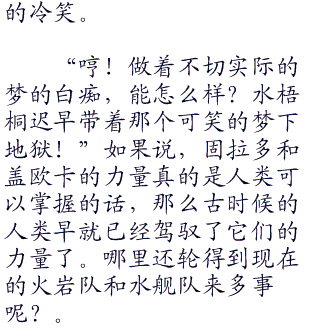 的冷笑。
“哼！做着不切实际的
梦的白痴，能怎么样？水梧
桐迟早带着那个可笑的梦下
地狱！”如果说，固拉多和
盖欧卡的力量真的是人类可
以掌握的话，那么古时候的
人类早就已经驾驭了它们的
力量了。哪里还轮得到现在
的火岩队和水舰队来多事
呢？。